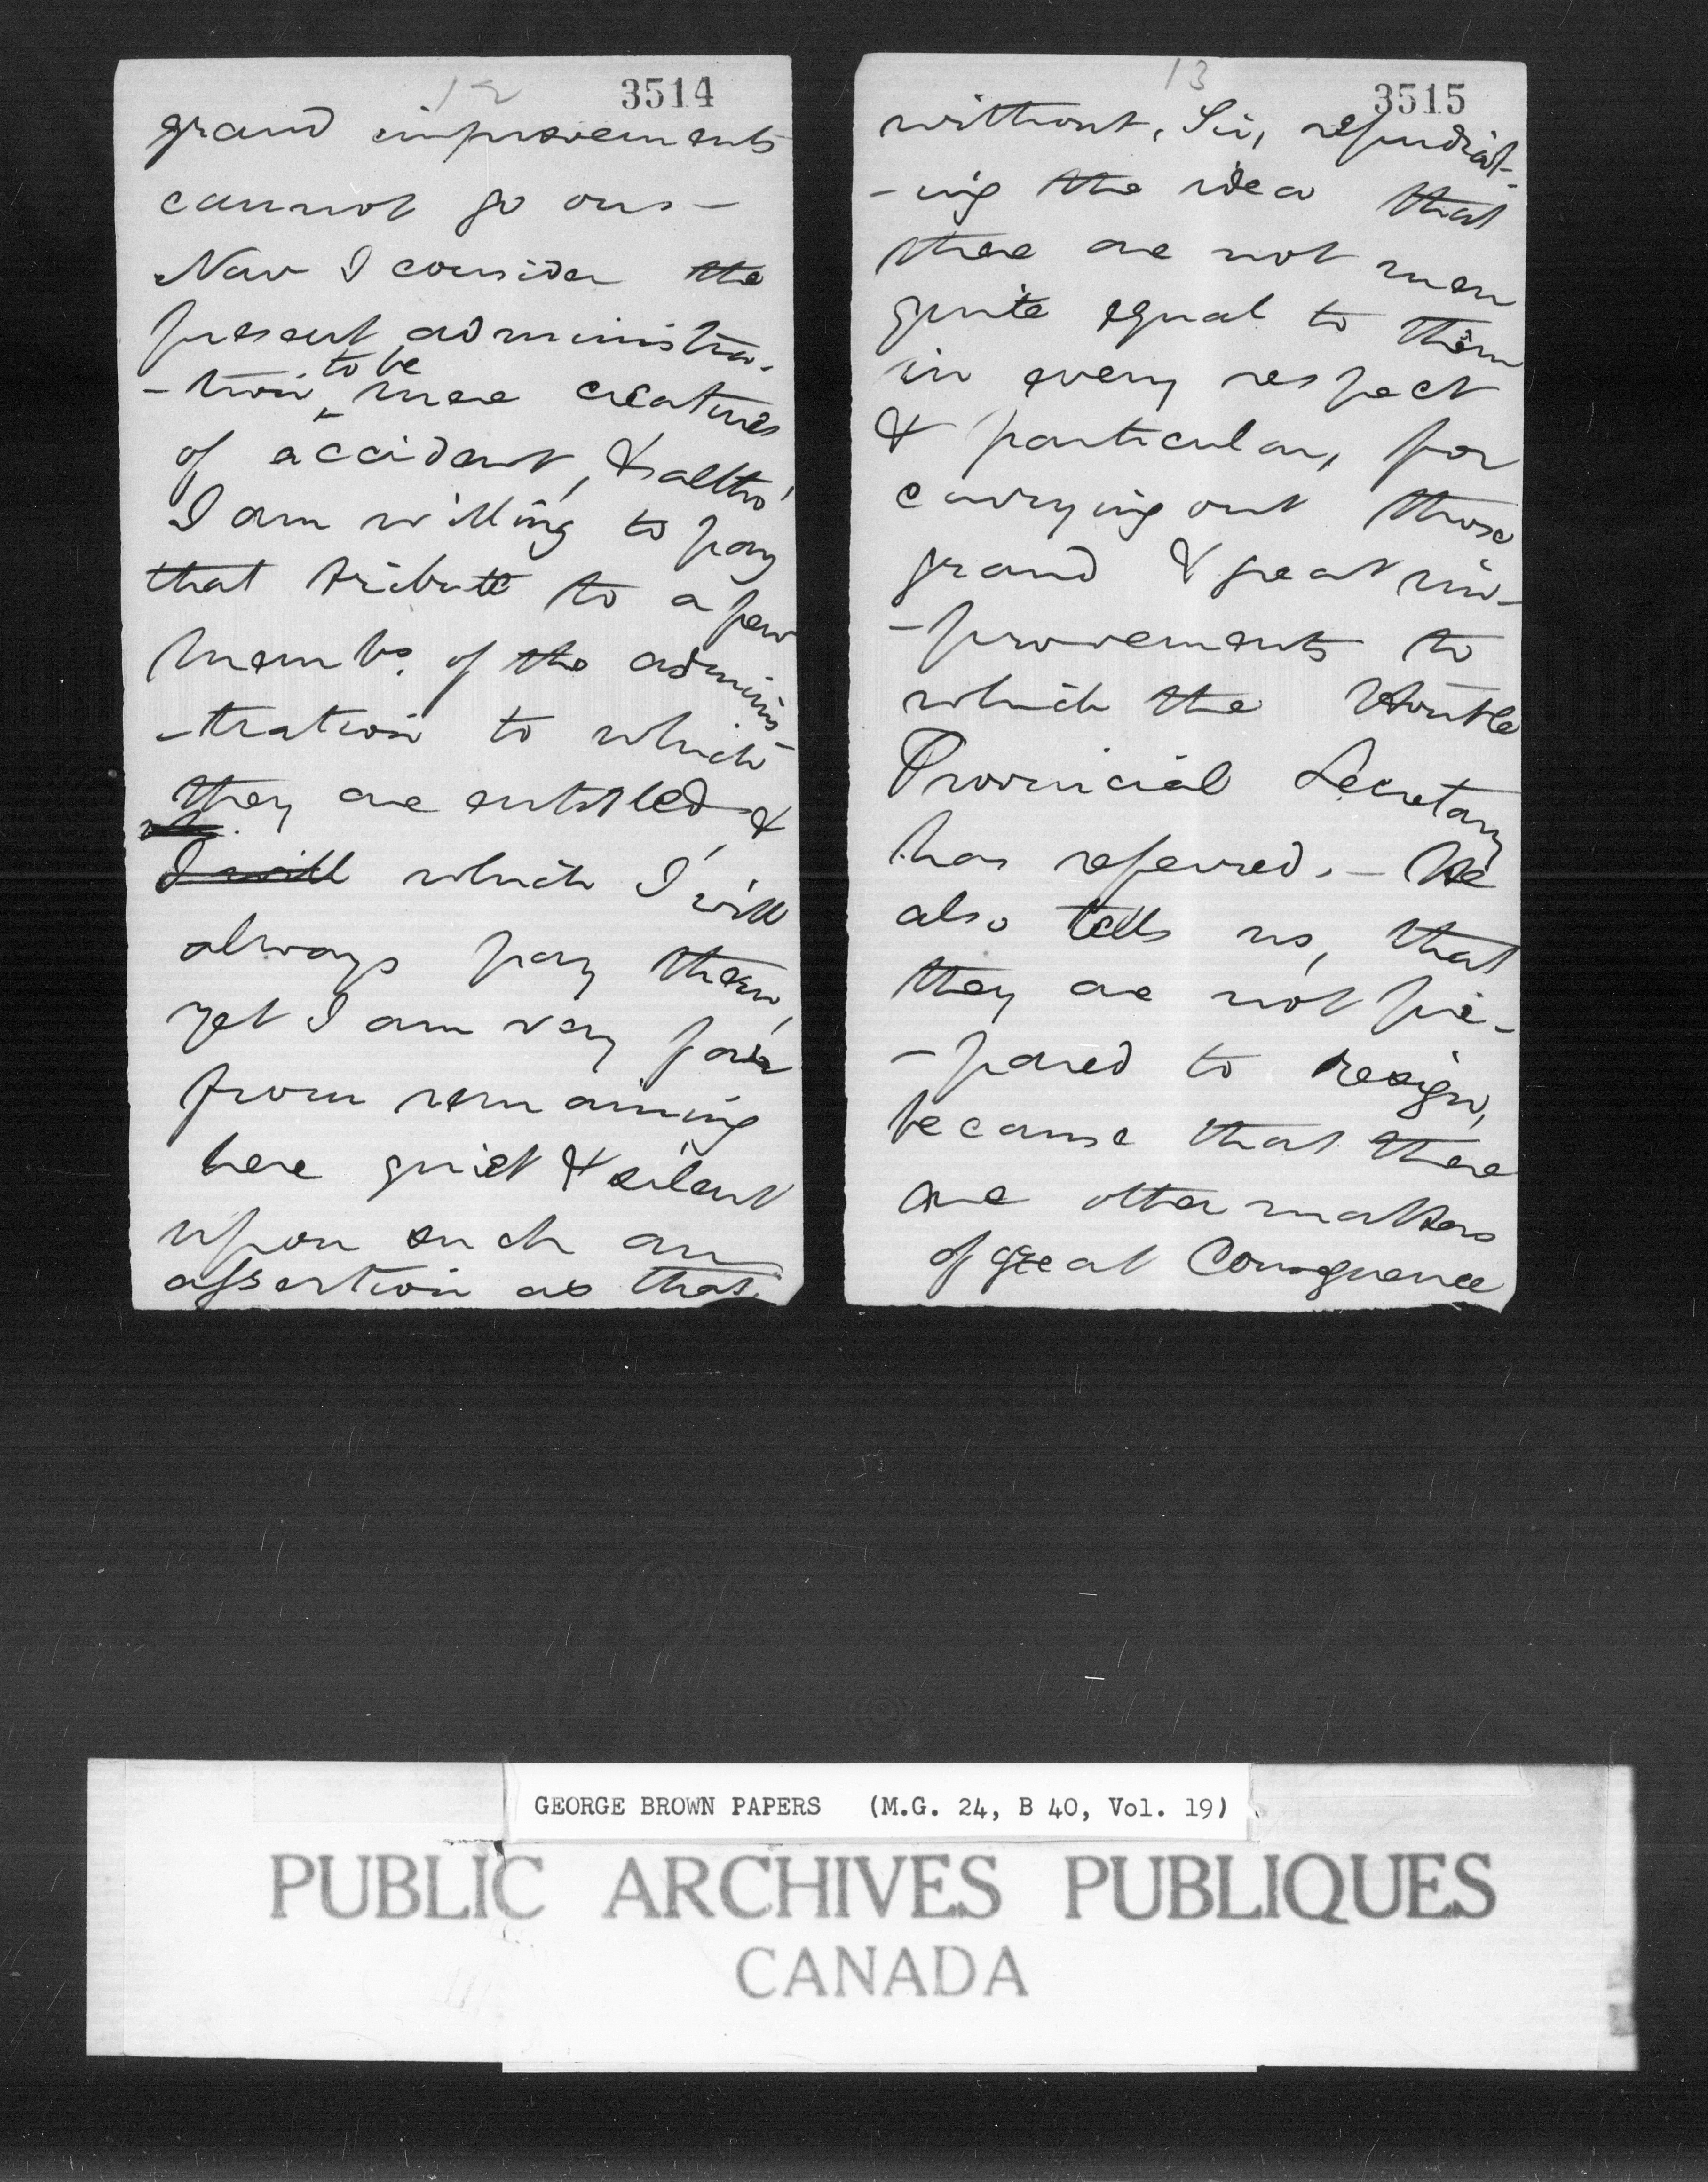 12
3514
grand improvements
cannot go on —
Now I consider the
present administra-
to be
-tion mere creatures
of accident, & altho'
I am willing to pay
that tribute to a few
membs. of the adminis
-tration to which
they are entitled &
I will which I will
always pay them,
yet I am very far
from remaining
here quiet & silent
upon such an
assertion as that
13
3515
without, Sir, repudiat-
-ing the idea that
there are not men
quite equal to them
in every respect
& particular, for
carrying out those
grand & great im-
-provements to
which the Honble
Provincial Secretary
has referred. — He
also tells us, that
they are not pre-
-pared to resign,
because that there
are other matters
of great Consequence
GEORGE BROWN PAPERS (M.G. 24, B 40, Vol. 19)
PUBLIC ARCHIVES PUBLIQUES
CANADA